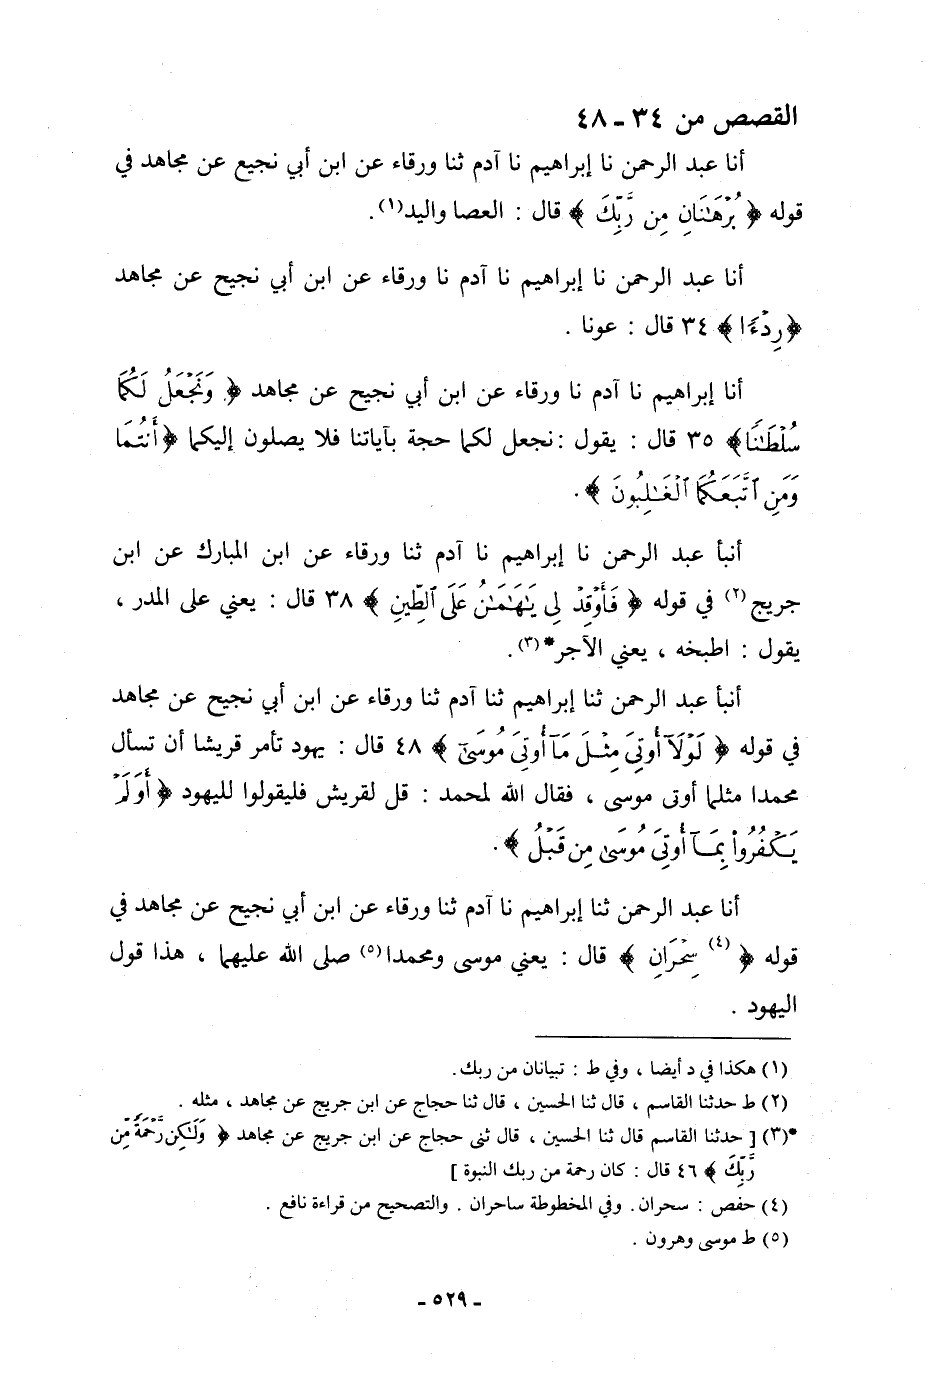 القصص من ٣٤ ـ ٤٨
أنا عبد الرحمن نا إبراهيم نا آدم ثنا ورقاء عن ابن أبي نجيع عن مجاهد في
قوله ﴿ بُرْهَٰنَانِ مِن رَّبِّكَ ﴾ قال : العصا واليد(١).
أنا عبد الرحمن نا إبراهيم نا آدم نا ورقاء عن ابن أبي نجيح عن مجاهد
﴿رِدْءًا﴾ ٣٤ قال : عونا .
أنا إبراهيم نا آدم نا ورقاء عن ابن أبي نجيح عن مجاهد ﴿ وَنَجْعَلُ لَكُمَا
سُلْطَٰنًا﴾ ٣٥ قال : يقول :نجعل لكما حجة بآياتنا فلا يصلون إليكما ﴿أَنتُمَا
وَمَنِ ٱتَّبَعَكُمَا ٱلْغَٰلِبُونَ ﴾.
أنبأ عبد الرحمن نا إبراهيم نا آدم ثنا ورقاء عن ابن المبارك عن ابن
جريج(٢) في قوله ﴿ فَأَوْقِدْ لِى يَٰهَٰمَٰنُ عَلَى ٱلطِّينِ ﴾ ٣٨ قال : يعني على المدر ،
يقول : اطبخه ، يعني الآجر*(٣).
أنبأ عبد الرحمن ثنا إبراهيم ثنا آدم ثنا ورقاء عن ابن أبي نجيح عن مجاهد
في قوله ﴿ لَوْلَآ أُوتِىَ مِثْلَ مَآ أُوتِىَ مُوسَىٰٓ ﴾ ٤٨ قال : يهود تأمر قريشا أن تسأل
محمدا مثلما أوتى موسى ، فقال الله لمحمد : قل لقريش فليقولوا لليهود ﴿ أَوَلَمْ
يَكْفُرُوا۟ بِمَآ أُوتِىَ مُوسَىٰ مِن قَبْلُ ﴾.
أنا عبد الرحمن ثنا إبراهيم نا آدم ثنا ورقاء عن ابن أبي نجيح عن مجاهد في
قوله ﴿ (٤) سِحْرَانِ ﴾ قال : يعني موسى ومحمدا(٥) صلى الله عليهما ، هذا قول
اليهود .
(١) هكذا في د أيضا ، وفي ط : تبيانان من ربك.
(٢) ط حدثنا القاسم ، قال ثنا الحسين ، قال ثنا حجاج عن ابن جريج عن مجاهد ، مثله .
*(٣) [ حدثنا القاسم قال ثنا الحسين ، قال ثنى حجاج عن ابن جريج عن مجاهد ﴿ وَلَٰكِن رَّحْمَةً مِّن
رَّبِّكَ ﴾ ٤٦ قال : كان رحمة من ربك النبوة ]
(٤) حفص : سحران. وفي المخطوطة ساحران . والتصحيح من قراءة نافع .
(٥) ط موسى وهرون .
ـ ٥٢٩ ـ